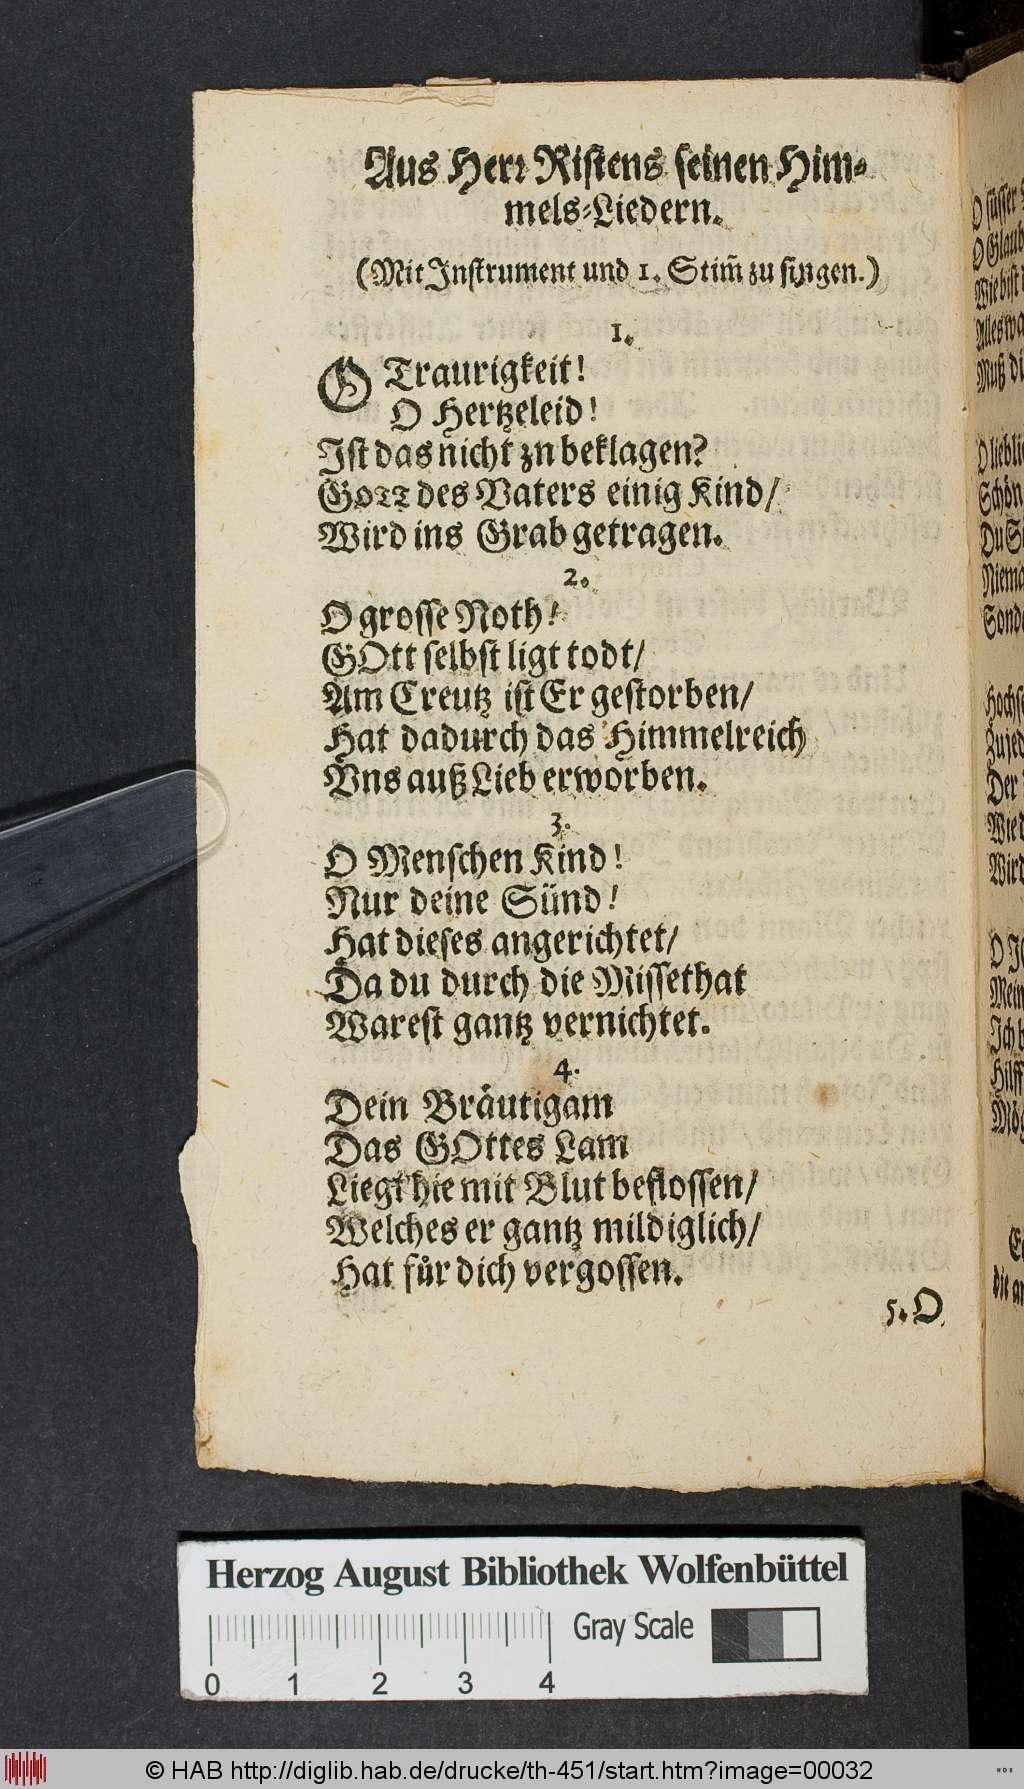 Aus Herr Ristens seinen Him-
mels-Liedern.
(Mit Instrument und 1. Stim̃ zu singen.)
1.
O Traurigkeit!
O Hertzeleid!
Ist das nicht zn beklagen?
GOTT des Vaters einig Kind/
Wird ins Grab getragen.
2.
O grosse Noth!
GOtt selbst ligt todt/
Am Creutz ist Er gestorben/
Hat dadurch das Himmelreich
Vns auß Lieb erworben.
3.
O Menschen Kind!
Nur deine Sünd!
Hat dieses angerichtet/
Da du durch die Missethat
Warest gantz vernichtet.
4.
Dein Bräutigam
Das GOttes Lam
Liegt hie mit Blut beflossen/
Welches er gantz mildiglich/
Hat für dich vergossen.
5. O
O süsser
O Glaub
Wie bist
Alles wa
Muß di
O liebli
Schön
Du S
Niema
Sond
Hochs
Zu jed
Der
Wie d
Wird
O J
Mein
Ich b
Hilff
Mög
die ar
Herzog August Bibliothek Wolfenbüttel
Gray Scale
0 1 2 3 4
© HAB http://diglib.hab.de/drucke/th-451/start.htm?image=00032